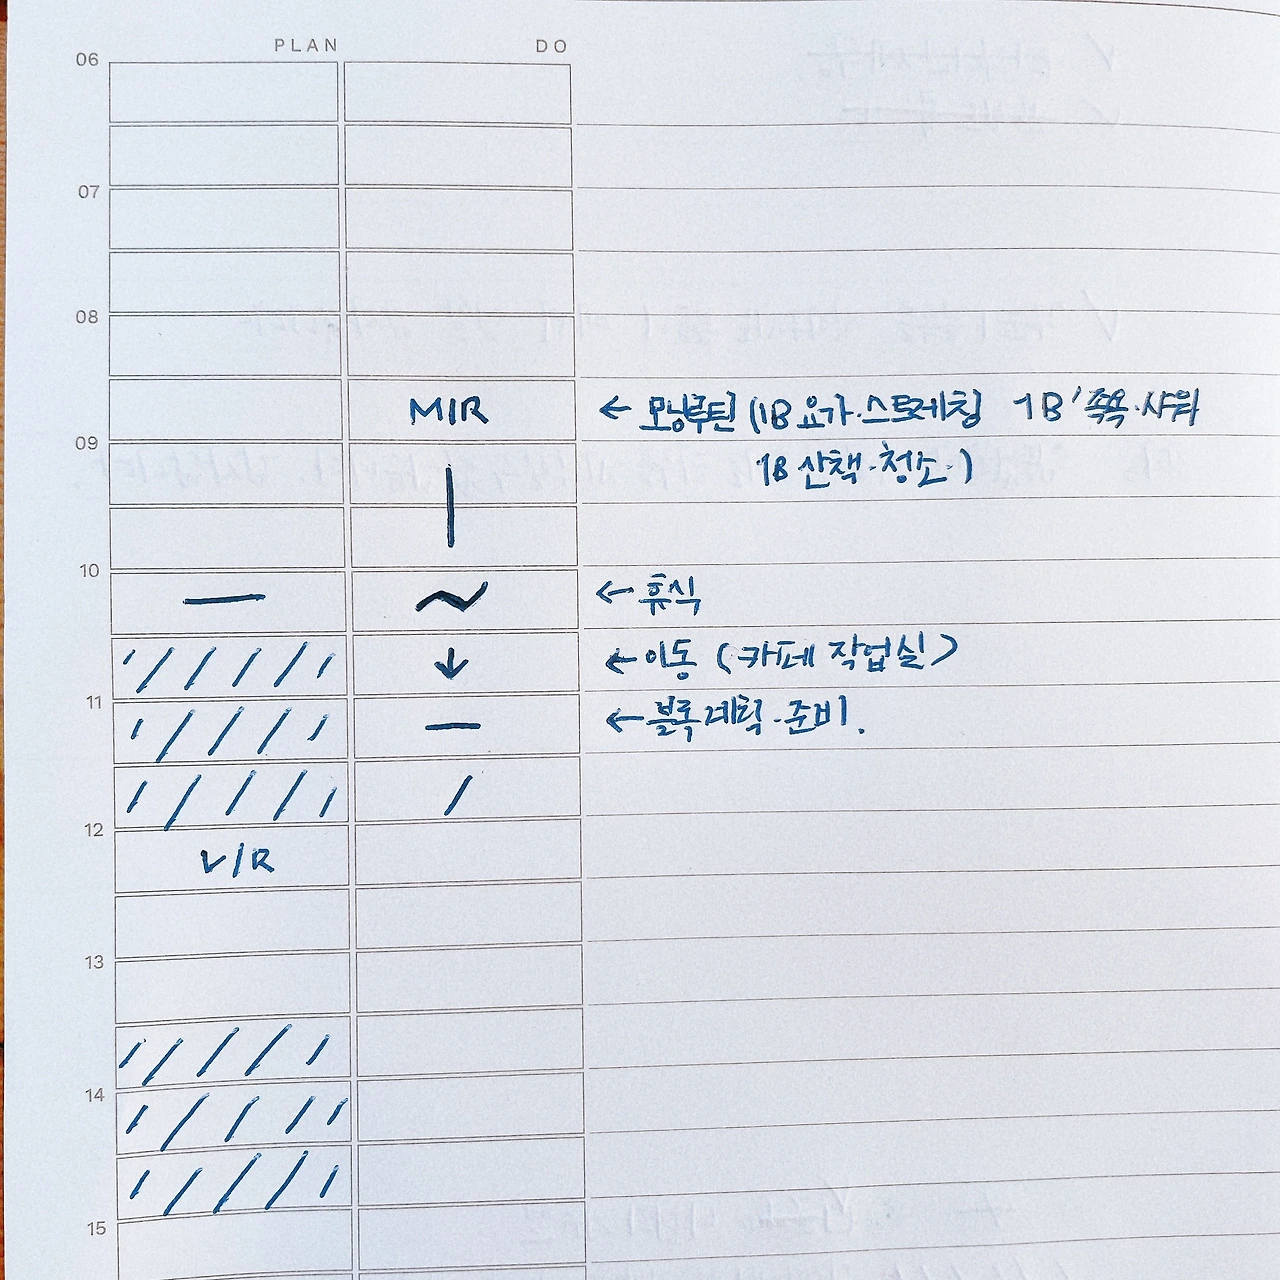 PLAN DO
06
07
08
M/R ← 모닝루틴 (1B 요가·스트레칭 1B 족욕·샤워
09
1B 산책·청소·)
10
— ~ ← 휴식
↓ ← 이동 (카페 작업실)
11
— ← 블록계획·준비.
12
L/R
13
14
15